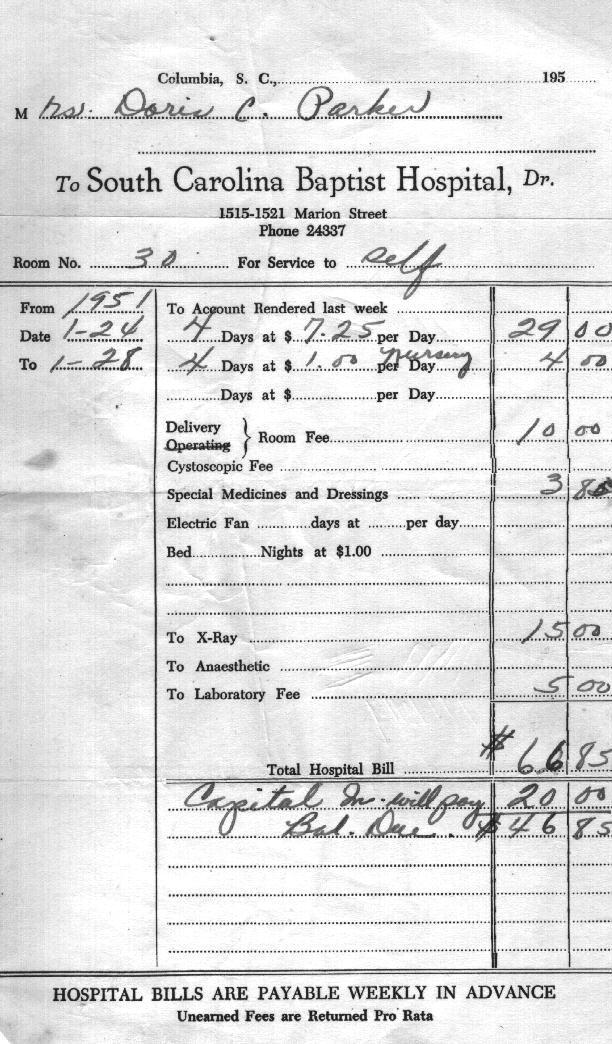 Columbia, S. C., 195
Mrs. Doris C. Parker
To South Carolina Baptist Hospital, Dr.
1515-1521 Marion Street
Phone 24337
Room No. 30 For Service to self
From 1951 To Account Rendered last week
Date 1-24 4 Days at $ 7.25 per Day 29 00
To 1-28 4 Days at $ 1.00 Nursery per Day 4 00
Days at $ per Day
Delivery
Operating } Room Fee 10 00
Cystoscopic Fee
Special Medicines and Dressings 3 85
Electric Fan days at per day
Bed Nights at $1.00
To X-Ray 15 00
To Anaesthetic
To Laboratory Fee 5 00
Total Hospital Bill $ 66 85
Capital In. will pay 20 00
Bal. Due. $ 46 85
HOSPITAL BILLS ARE PAYABLE WEEKLY IN ADVANCE
Unearned Fees are Returned Pro Rata